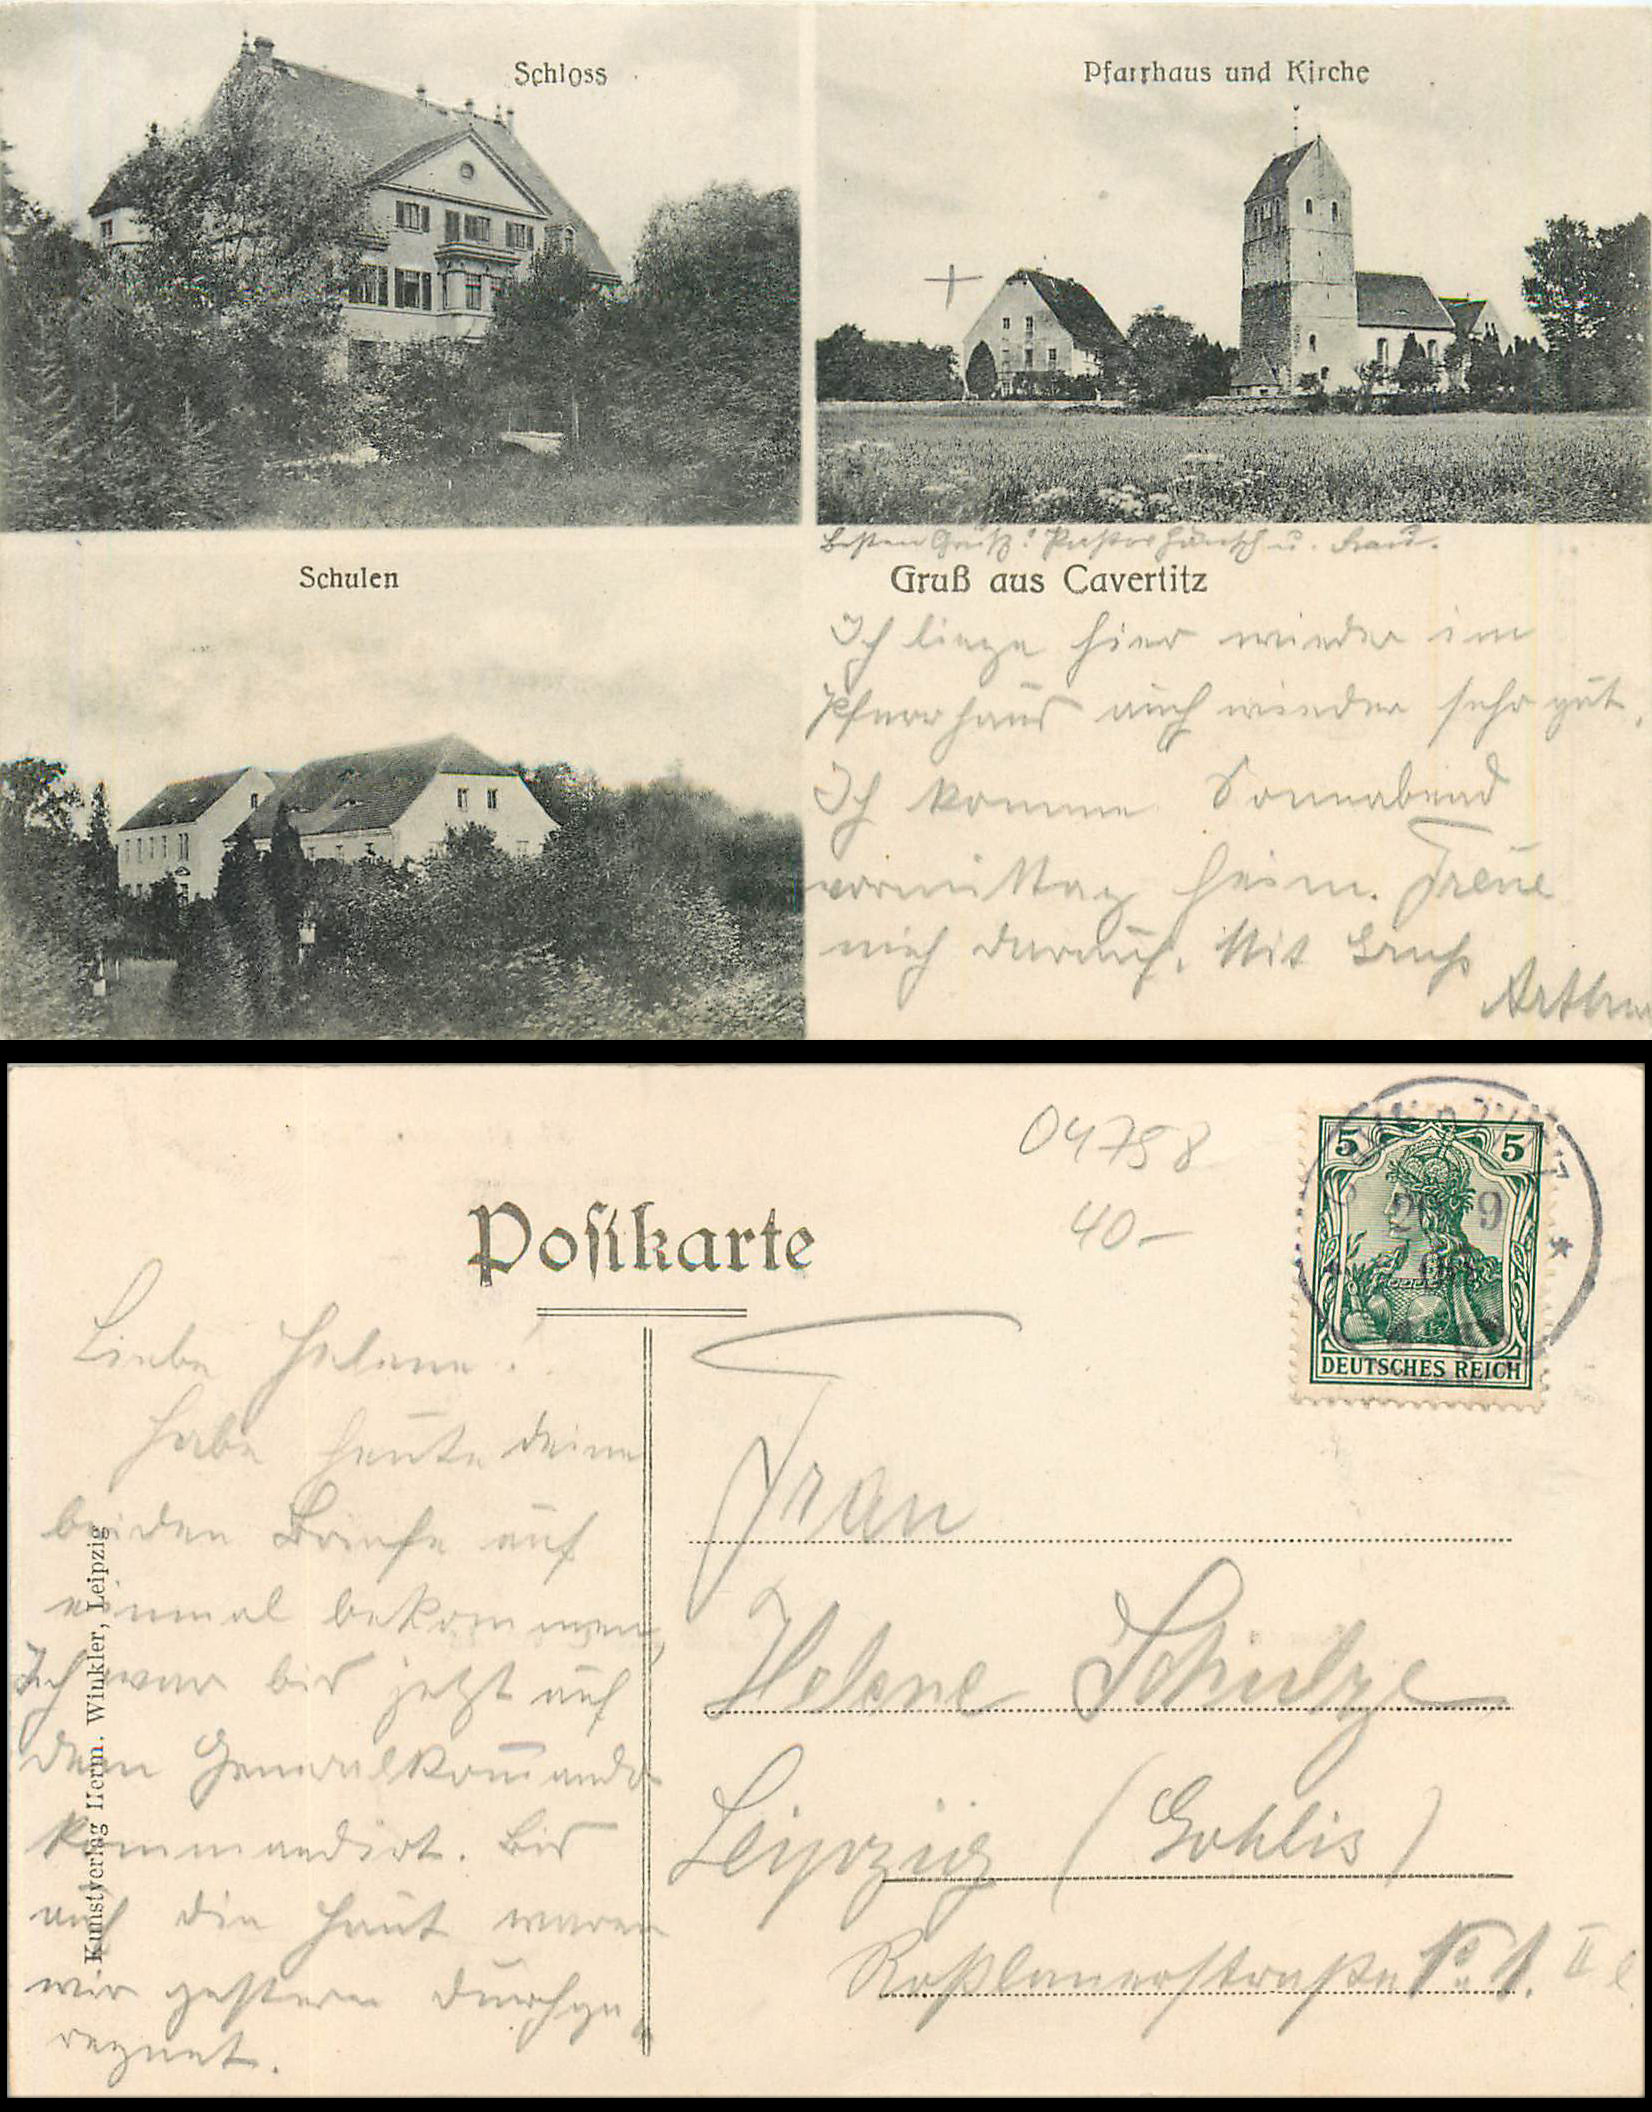 Schloss
Pfarrhaus und Kirche
Besten Gruß! Pastor Hänsch u. Frau.
Schulen
Gruß aus Cavertitz
Ich liege hier wieder im
Pfarrhaus auch wieder sehr gut.
Ich komme Sonnabend
vormittag heim. Freue
mich darauf. Mit Gruß
Arthur
04758
40.-
Postkarte
5 5
DEUTSCHES REICH
Liebe Helene!
Habe heute deine
beiden Briefe auf
einmal bekommen,
Ich war bis jetzt auf
dem Generalkommando
kommandirt. Bis
auf die Haut waren
wir gestern durchge
regnet.
Kunstverlag Herm. Winkler, Leipzig
Frau
Helene Schulze
Leipzig (Gohlis)
Roßlauerstraße No 1. II l.